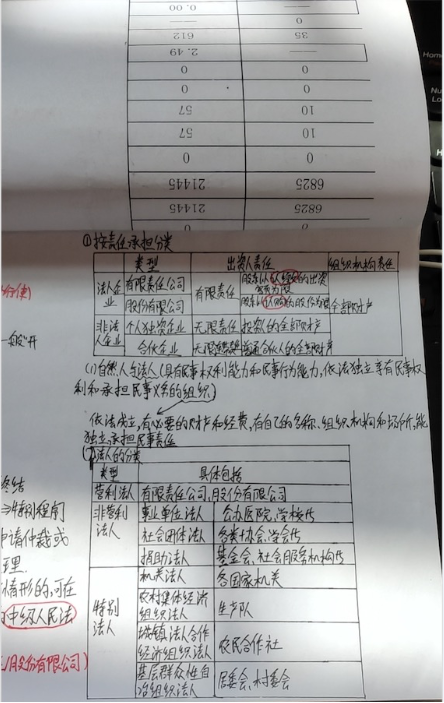 0.00
—
—
612
35
2.49
—
0
0
0
0
57
10
57
10
0
0
21445
6825
21445
6825
①按责任承担分类
类型 出资人责任 组织机构责任
法人企业 有限责任公司 有限责任 股东以认缴的出资额为限 全部财产
股份有限公司 股东以认购的股份为限
非法人企业 个人独资企业 无限责任 投资人的全部财产
合伙企业 普通合伙人的全部财产
(1)自然人与法人(具有民事权利能力和民事行为能力,依法独立享有民事权
利和承担民事义务的组织)
依法成立,有必要的财产和经费,有自己的名称、组织机构和场所,能
独立承担民事责任
法人的分类
类型 具体包括
营利法人 有限责任公司,股份有限公司
非营利法人 事业单位法人 公办医院,学校等
社会团体法人 各类协会,学会等
捐助法人 基金会,社会服务机构等
特别法人 机关法人 各国家机关
农村集体经济组织法人 生产队
城镇 法合作经济组织法人 农民合作社
基层群众性自治组织法人 居委会,村委会
一般"开
终结
特别程序
申请仲裁或
理
情形的,可在
中级人民法
股份有限公司)